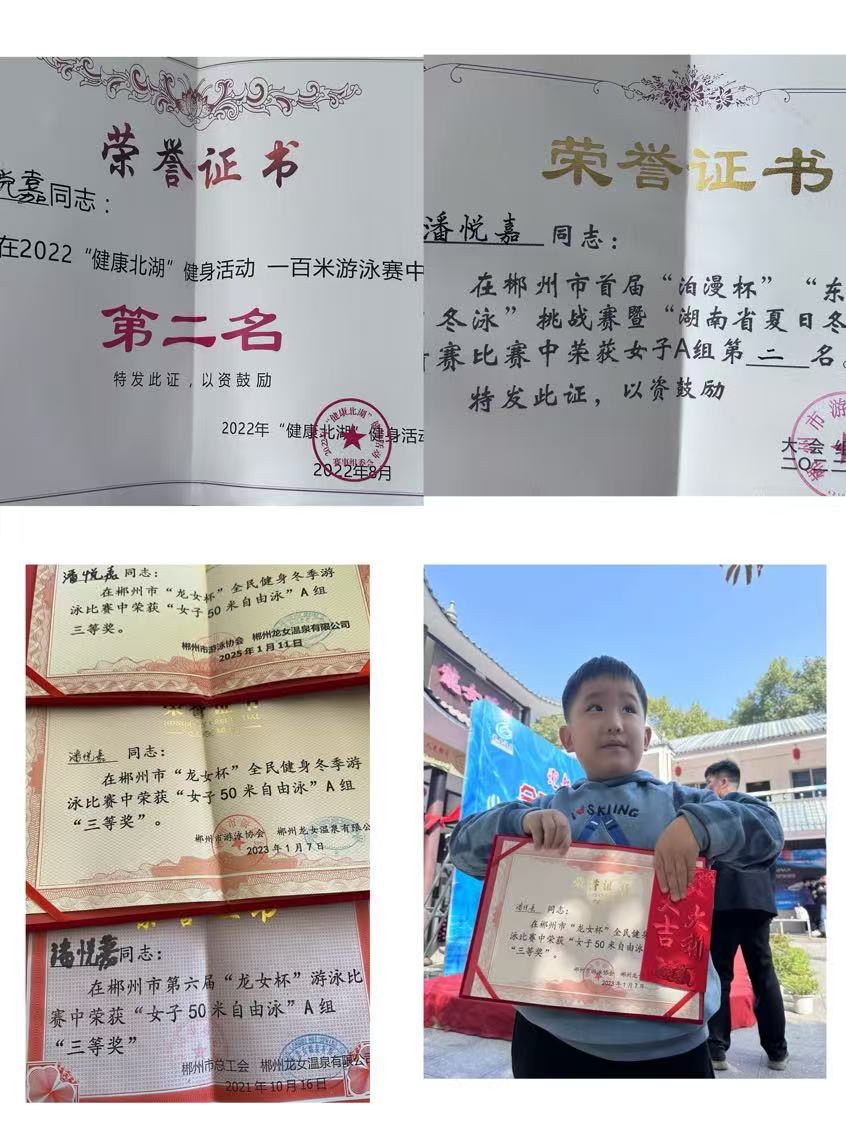 荣誉证书
悦嘉同志：
在2022“健康北湖”健身活动 一百米游泳赛中
第二名
特发此证，以资鼓励
2022年“健康北湖”健身活动
赛事组委会
2022年8月
荣誉证书
潘悦嘉 同志：
在郴州市首届“泊漫杯”“东
冬泳”挑战赛暨“湖南省夏日冬
赛比赛中荣获女子A组第 二 名。
特发此证，以资鼓励
郴州市游
大会组
二〇二二
潘悦嘉同志：
在郴州市“龙女杯”全民健身冬季游
泳比赛中荣获“女子50米自由泳”A组
三等奖。
郴州市游泳协会 郴州龙女温泉有限公司
2025年1月11日
荣誉证书
潘悦嘉 同志：
在郴州市“龙女杯”全民健身冬季游
泳比赛中荣获“女子50米自由泳”A组
“三等奖”。
郴州市游泳协会 郴州龙女温泉有限公
2023年1月7日
荣誉证书
潘悦嘉同志：
在郴州市第六届“龙女杯”游泳比
赛中荣获“女子50米自由泳”A组
“三等奖”
郴州市总工会 郴州龙女温泉有限公司
2021年10月16日
龍女
SKIING
荣誉证书
潘悦嘉 同志：
在郴州市“龙女杯”全民健
泳比赛中荣获“女子50米自由泳
“三等奖”。
郴州市游泳协会 郴州龙
2023年1月7日
大吉
大利